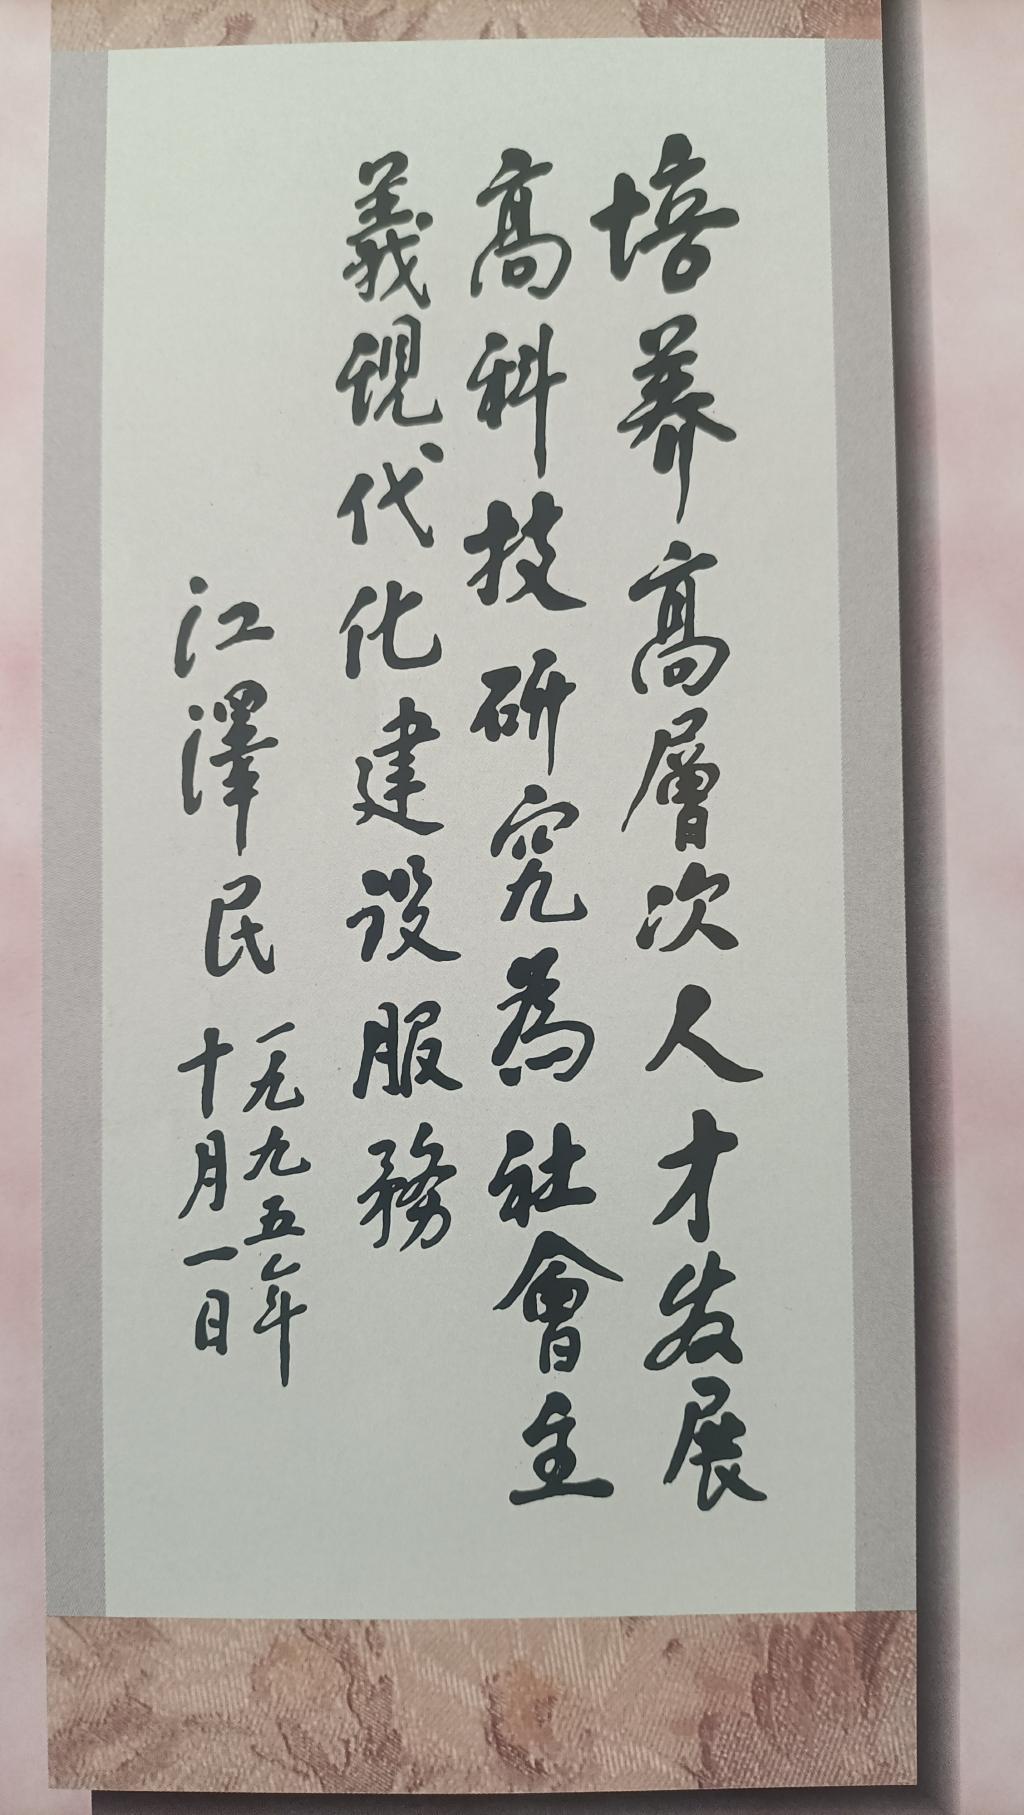 培养高層次人才发展
高科技研究為社會主
義現代化建设服務
江澤民
一九九五年
十月一日